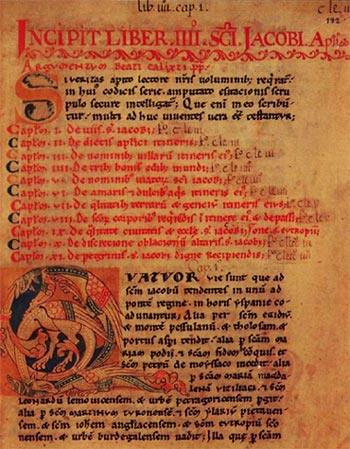 lib. iiij. cap. 1.
192
INCIPIT LIBER IIII SCI JACOBI Apli
ARGVMENTVM Beati Calixti pp.
Si veritas apto lectore nris voluminib; reqrat̃.
in hui codicis serie. amputato esitacionis scru
pulo secure intelligat̃; Que eni in eo scribũ
tur. multi adhuc viventes vera ee testantur;
Capitol. I. De viis. s. iacobi;
Capitol. II. De dietis aplici itineris;
Capitol. III. De nominib; villarũ itineris ei;
Capitol. IV. De trib; bonis edib; mundi;
Capitol. V. De nominib; viatorũ sci iacobi;
Capitol. VI. De amaris & dulcib; aqs itineris ei;
Capitol. VII. De qlitatib; terrarũ & genciũ itineris ei;
Capitol. VIII. De scor corporib; reqrendis i itinere ei. & de passi
Capitol. IX. De qlitate civitatis & eccle. s. iacobi;
Capitol. X. De discrecione oblacionũ altaris. s. iacobi;
Capitol. XI. De pegrinis. s. iacobi digne recipiendis;
QVATVOR vie sunt que ad
scm iacobũ tendentes in unũ ad
pontẽ regine. in horis yspanie co
adunantur; Alia per scm egidiũ.
& montẽ pessulanũ. & tholosam. &
portus aspi tendit. alia p scam
mariam podii. & scam fidem de conquis. &
scm petrũ de moyssaco incedit. alia p
scam mariã magda
lenã viziliaca. & scm
leonardũ lemovicensem. & urbẽ petragoricensem pgit.
alia p scm martinum turonensẽ. & scm ylariũ pictaven
sem. & scm iohem angliacensem. & scm eutropiũ sco
nensem. & urbẽ burdegalensem vadit; Illa que p scam